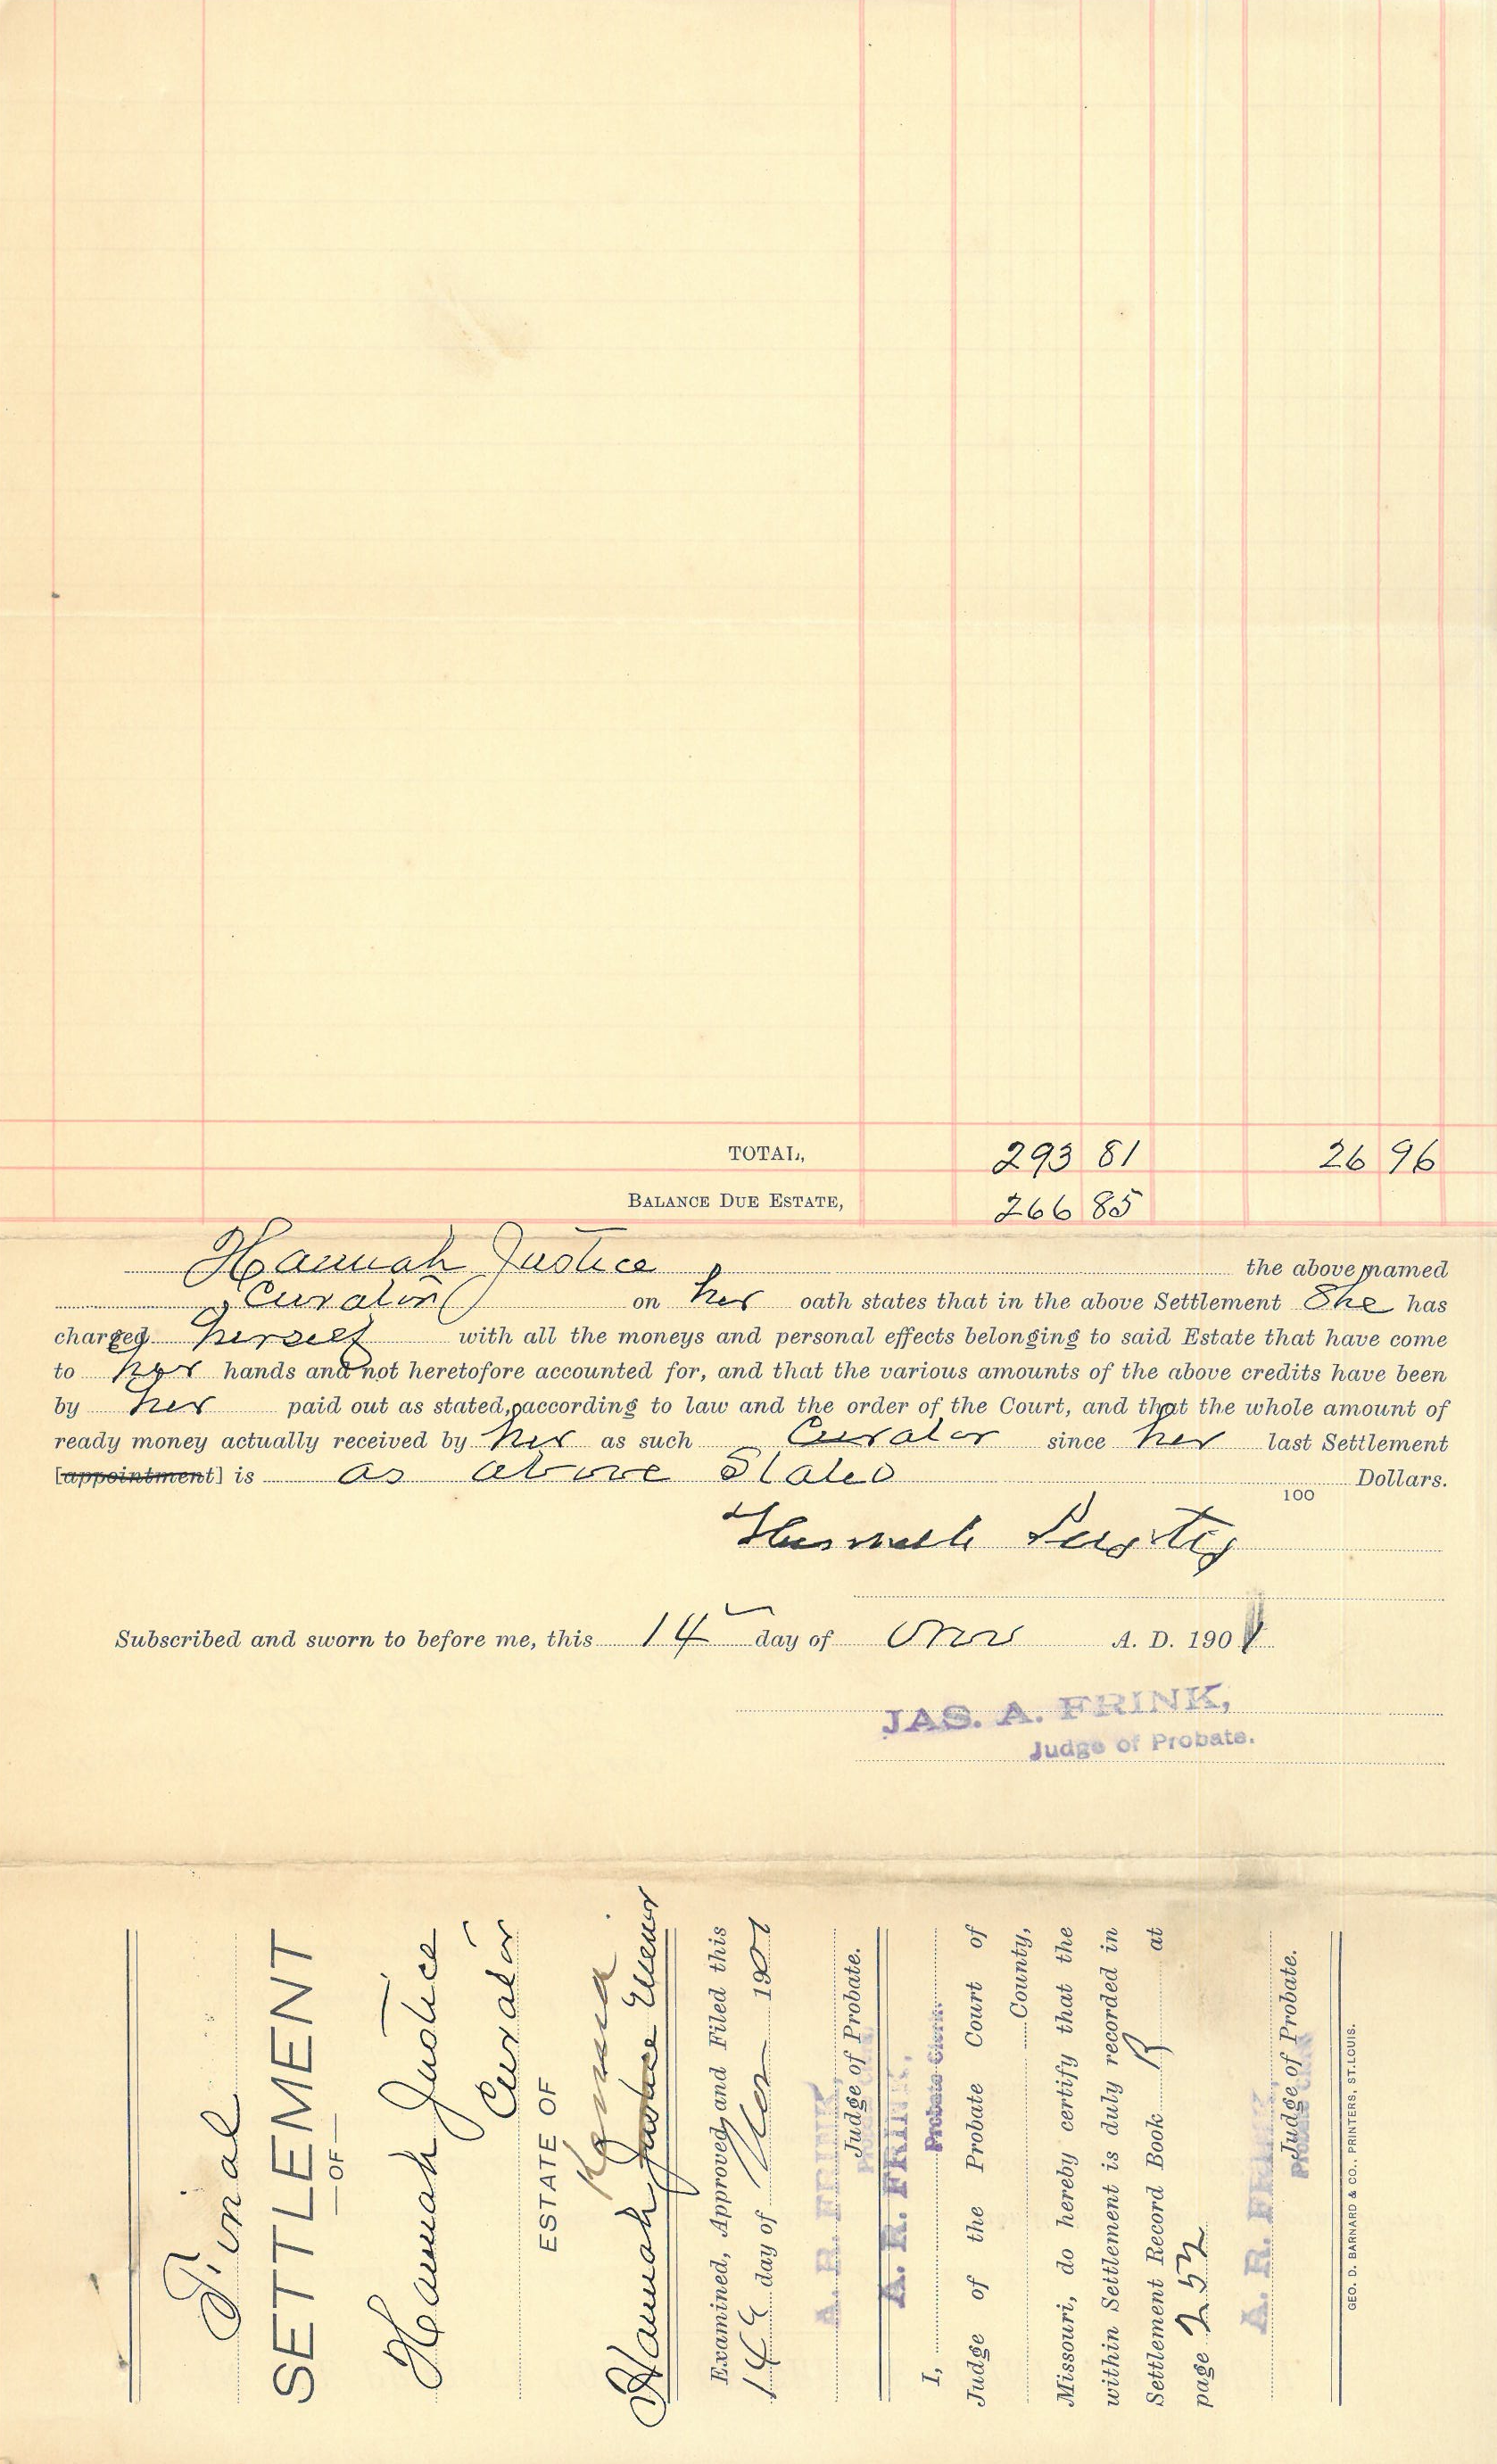 TOTAL, 293 81 26 96
BALANCE DUE ESTATE, 266 85
Hannah Justice the above named
Curator on her oath states that in the above Settlement She has
charged herself with all the moneys and personal effects belonging to said Estate that have come
to her hands and not heretofore accounted for, and that the various amounts of the above credits have been
by her paid out as stated, according to law and the order of the Court, and that the whole amount of
ready money actually received by her as such Curator since her last Settlement
[appointment] is as above Stated Dollars.
100
Subscribed and sworn to before me, this 14 day of Nov A. D. 1901
JAS. A. FRINK,
Judge of Probate.
Final
SETTLEMENT
—OF—
Hannah Justice
Curator
ESTATE OF
Hannah Justice Minor
Examined, Approved and Filed this
14 day of Nov 1901
A. R. FRINK,
Judge of Probate.
A. R. FRINK,
I, Probate Clerk.
Judge of the Probate Court of
County,
Missouri, do hereby certify that the
within Settlement is duly recorded in
Settlement Record Book B at
page 252
A. R. FRINK
Judge of Probate.
GEO. D. BARNARD & CO., PRINTERS, ST. LOUIS.